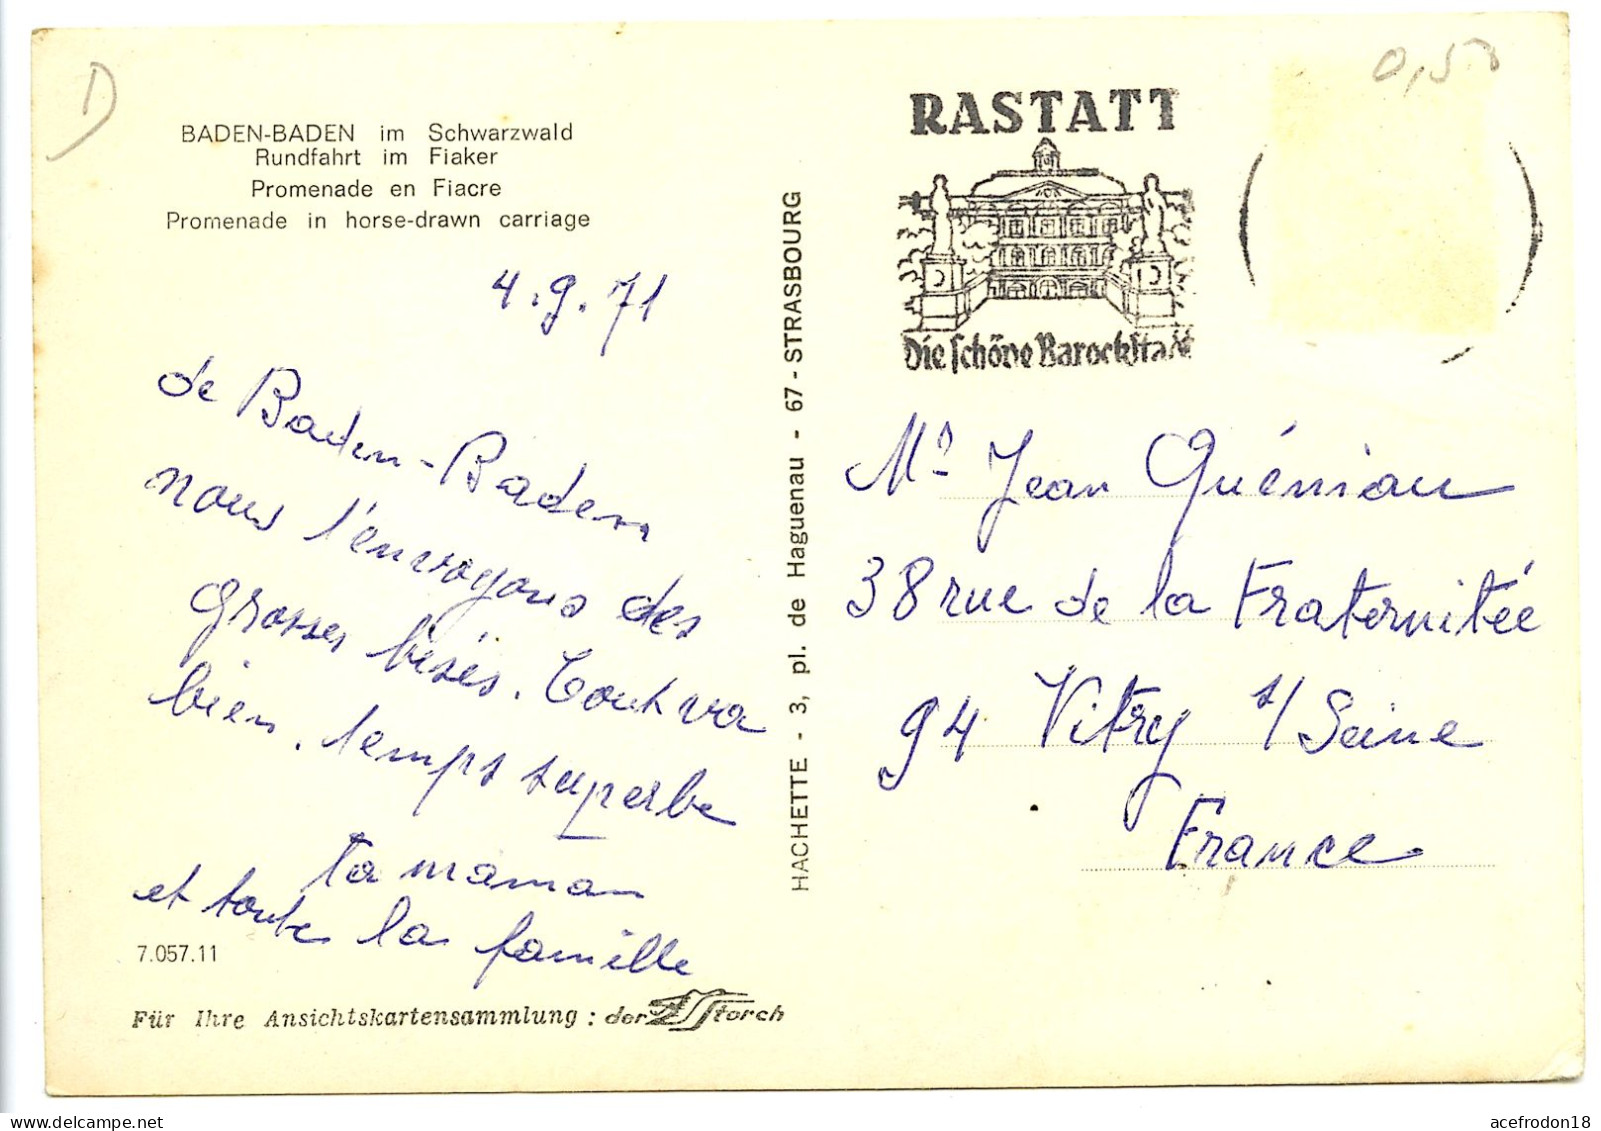 D
0,50
BADEN-BADEN im Schwarzwald
Rundfahrt im Fiaker
Promenade en Fiacre
Promenade in horse-drawn carriage
4.9.71
de Baden-Baden
nous t'envoyons des
grosses bisés. Tout va
bien. temps superbe
ta maman
et toute la famille
7.057.11
Für Ihre Ansichtskartensammlung : der Storch
HACHETTE - 3, pl. de Haguenau - 67 - STRASBOURG
RASTATT
Die schöne Barockstadt
Mr Jean Quéniau
38 rue de la Fraternitée
94 Vitry s/ Seine
France
acefrodon18